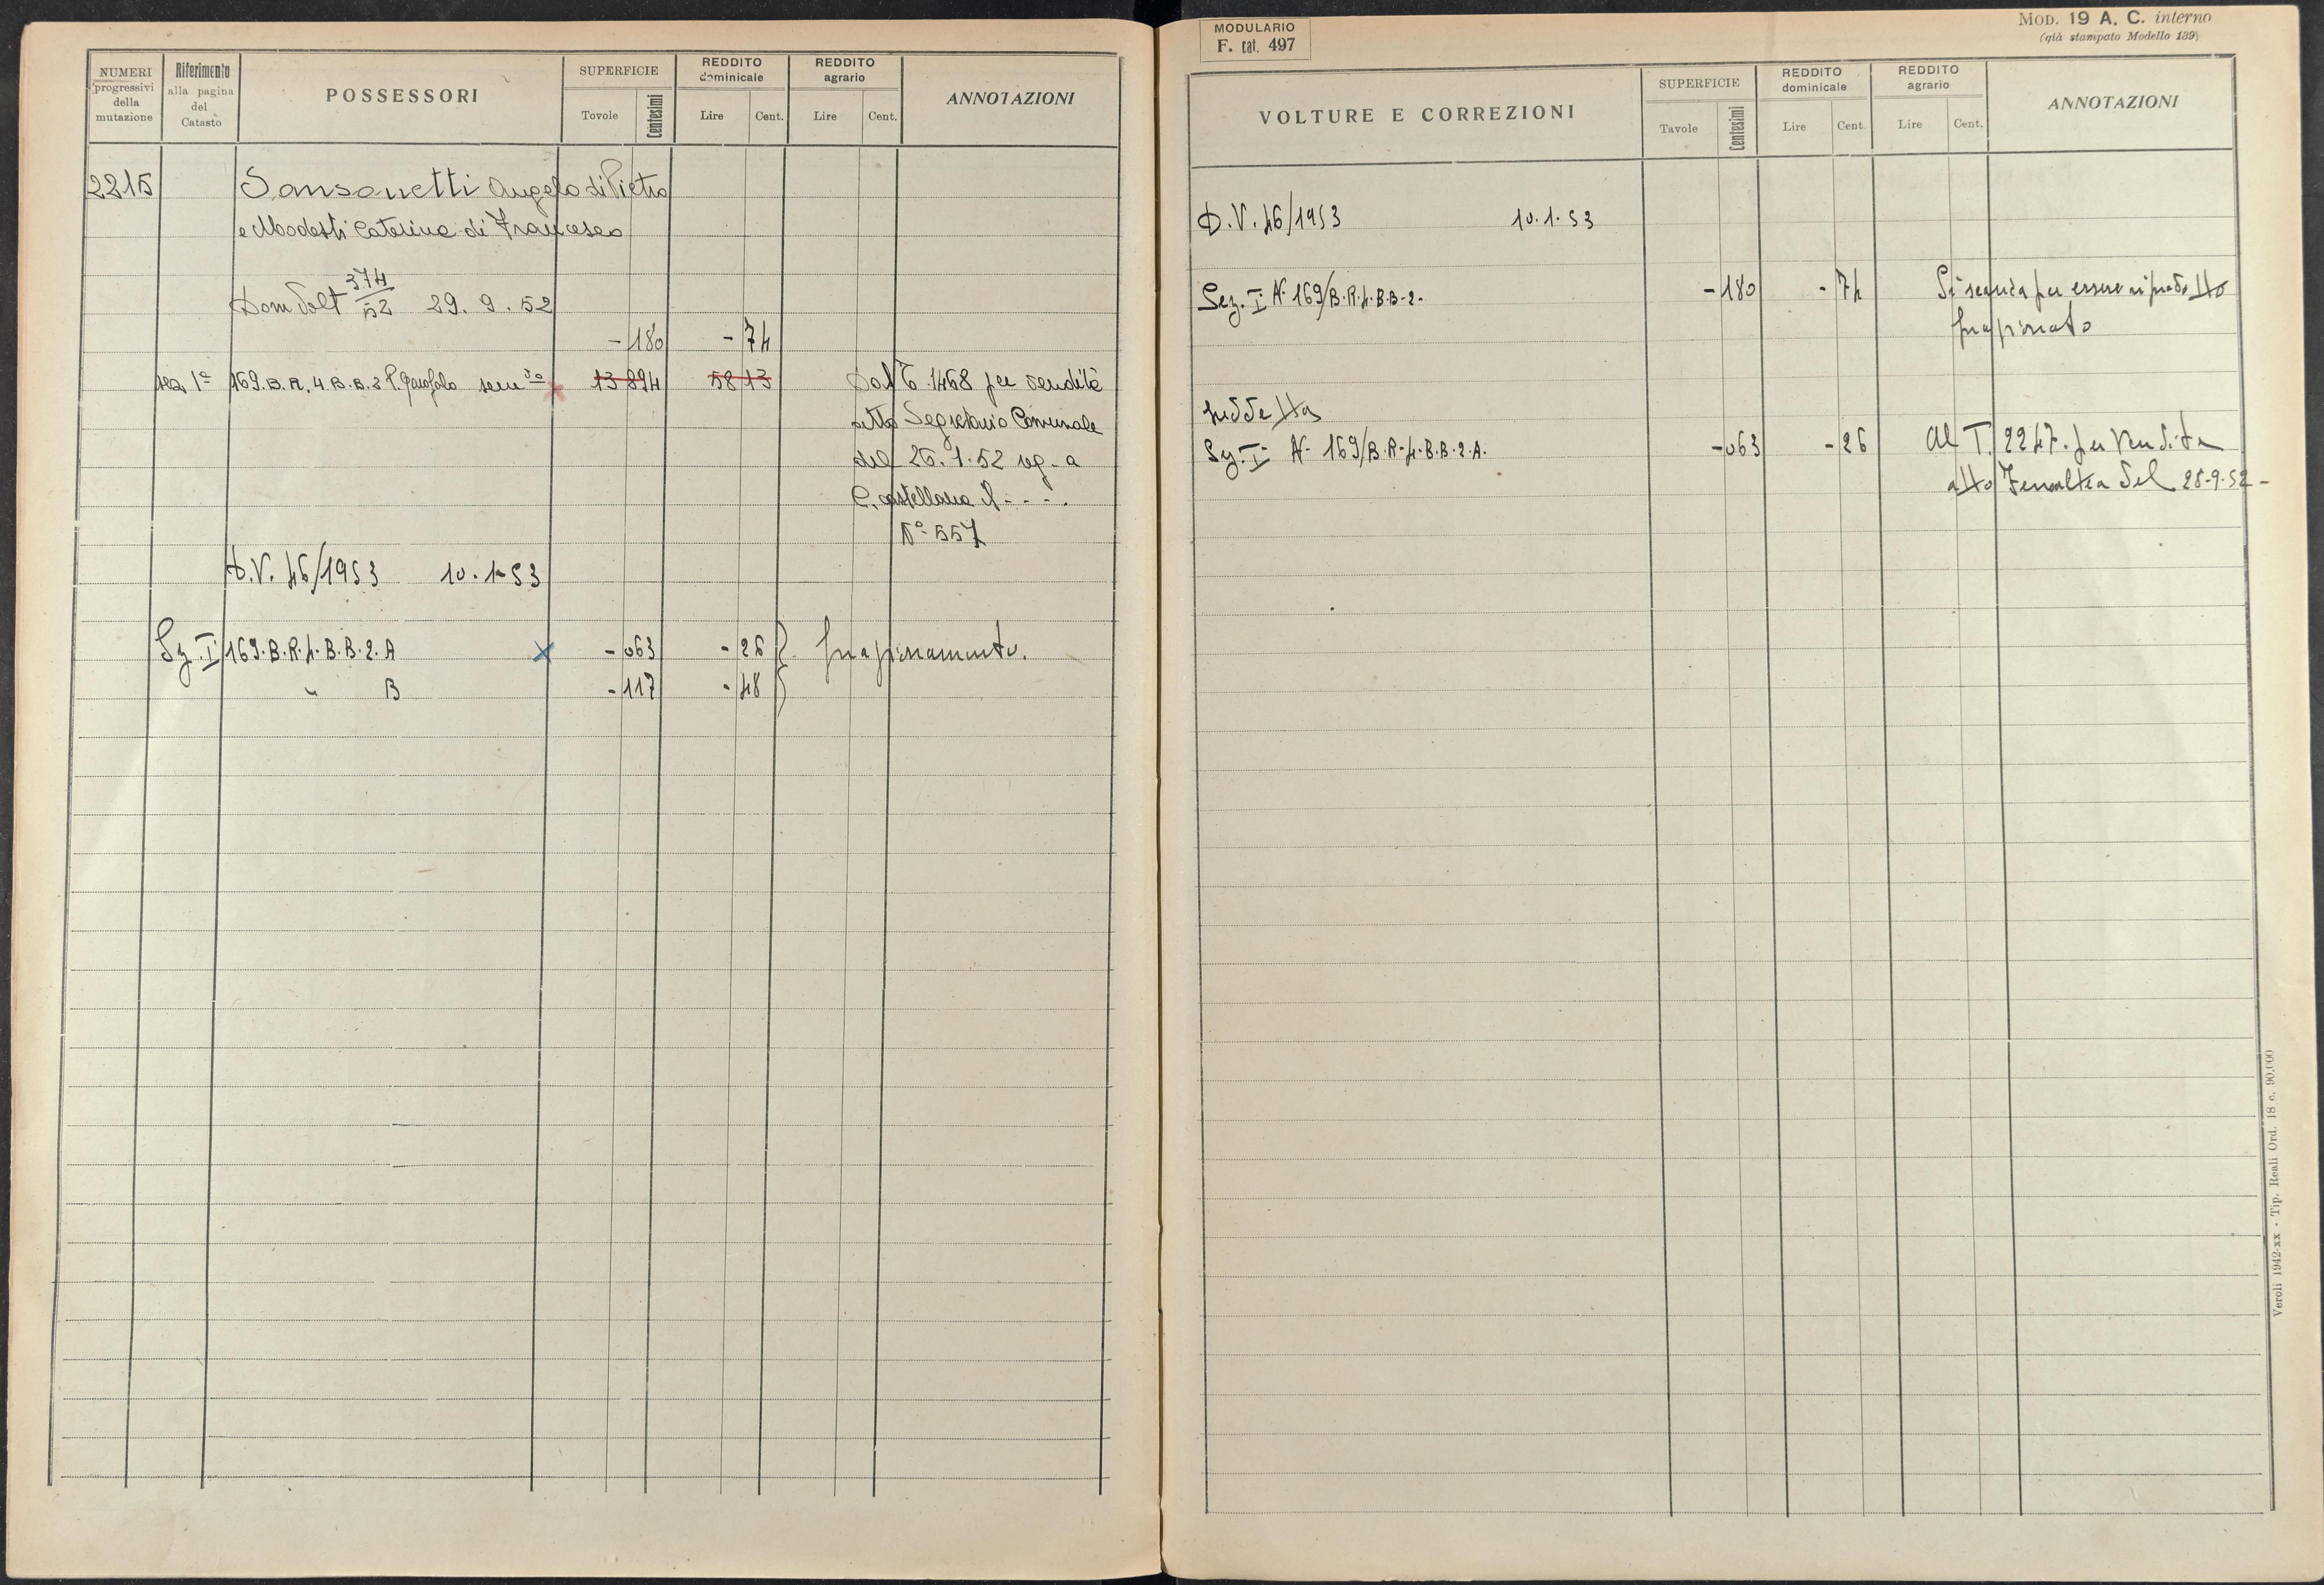 NUMERI progressivi della mutazione
Riferimento alla pagina del Catasto
POSSESSORI
SUPERFICIE
Tovole
Centesimi
REDDITO dominicale
Lire
Cent.
REDDITO agrario
Lire
Cent.
ANNOTAZIONI
2215 Sansonetti Angelo di Pietro
e Modesti Caterina di Francesco
Dom Volt 374/52 29. 9. 52
- 180 - 74
sez 1ª 169.B.R.4.B.B.2 P. Garofolo sem 13 894 58 13 Dal T. 1468 per vendita
atto Segretario Comunale
del 26.1.52 reg. a
C. castellana il - - - .
Nº 557
D.V. 46/1953 10.1.53
Sez. I 169.B.R.4.B.B.2.A - 063 - 26 frazionamento.
" B - 117 - 48
MODULARIO
F. cat. 497
MOD. 19 A. C. interno
(già stampato Modello 139)
VOLTURE E CORREZIONI
SUPERFICIE
Tavole
Centesimi
REDDITO dominicale
Lire
Cent.
REDDITO agrario
Lire
Cent.
ANNOTAZIONI
D.V. 46/1953 10.1.53
Sez. I N. 169/B.R.4.B.B-2. - 180 - 74 Si scarica per essere riprodotto
frazionato
suddetta
Sez. I N. 169/B.R.4.B.B.2.A. - 063 - 26 Al T. 2247 per vendita
atto del 28-9-52-
Veroli 1942-XX - Tip. Reali Ord. 18 c. 90.000